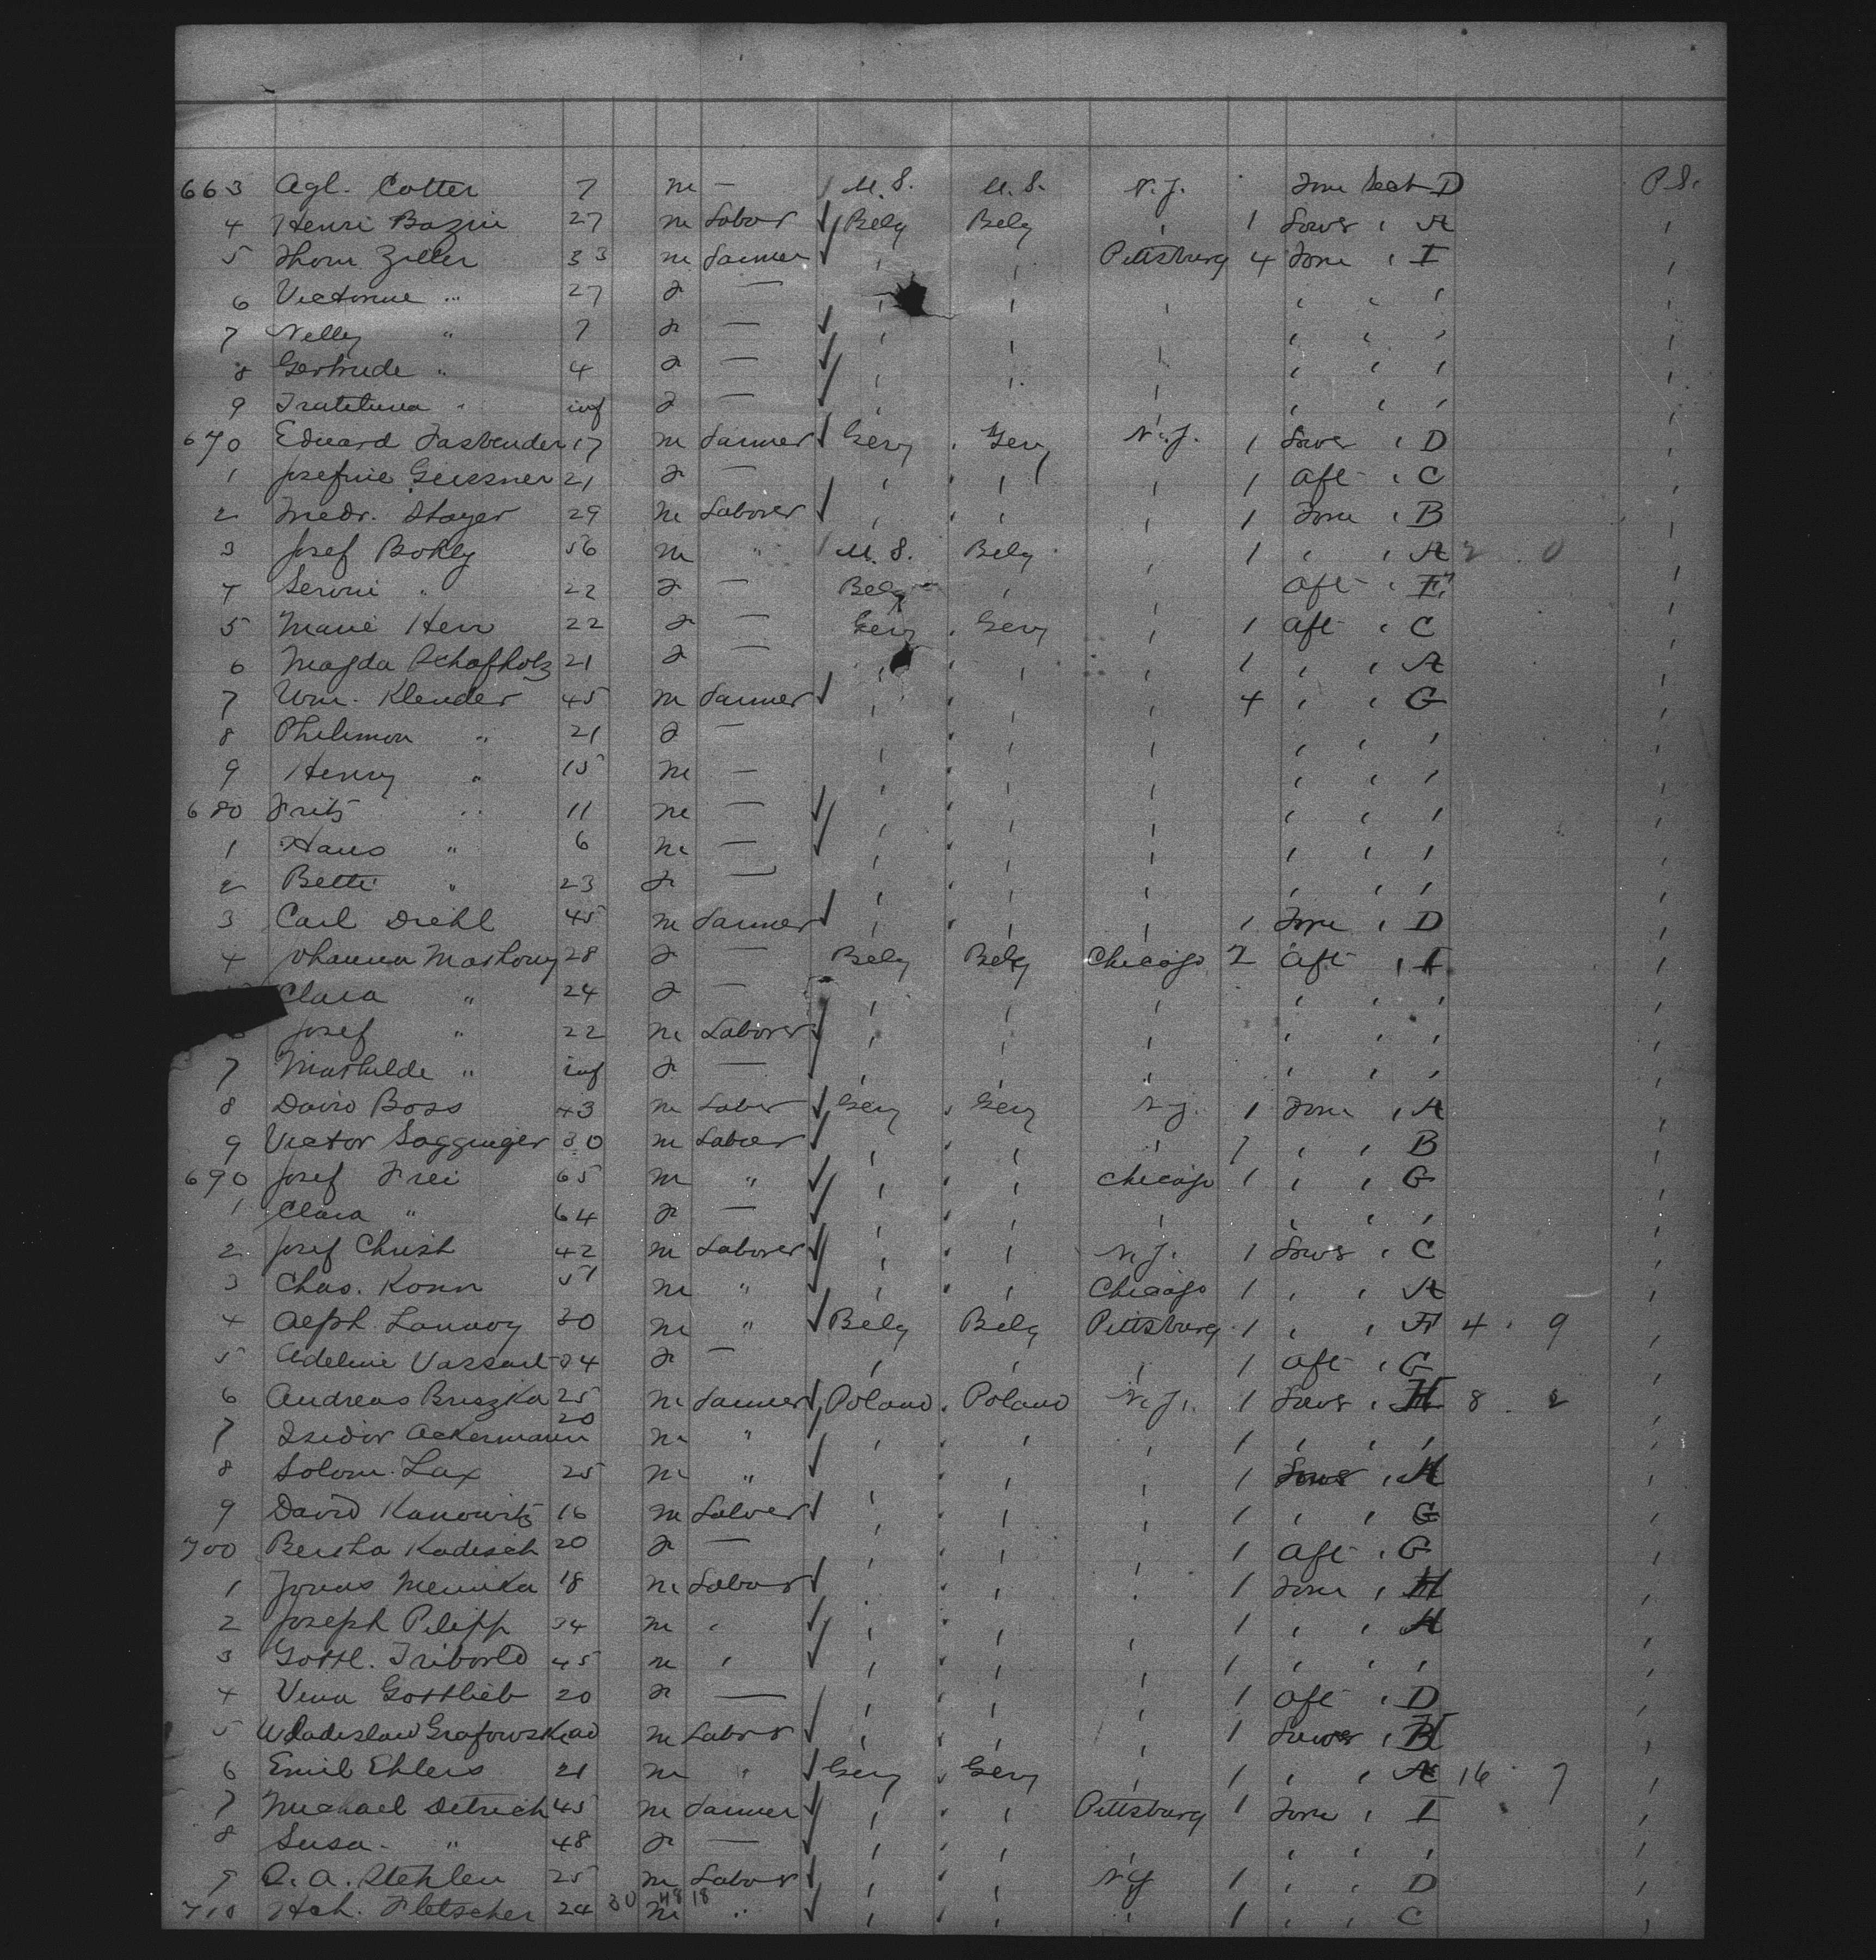 663 Agl. Cotter 7 m — U.S. U.S. N.Y. Fore Sect D P.S.
4 Henri Bazin 27 m Labor Belg Belg " 1 Lower " A "
5 Thom Zeller 33 m Farmer " " Pittsburg 4 Fore " I "
6 Victorine " 27 f — " " " " " " "
7 Nelly " 7 f — " " " " " " "
8 Gertrude " 4 f — " " " " " " "
9 " inf f — " " " " " " "
670 Eduard Fasbender 17 m Farmer Gery Gery N.Y. 1 Lower " D "
1 Josefine Geissner 21 f — " " " 1 Aft " C "
2 Fredr. Stayer 29 m Laborer " " " 1 Fore " B "
3 Josef Bokly 56 m " U.S. Belg " 1 " " A 2 . 0 "
4 " 22 f — Belg " Aft " "
5 Marie Herr 22 f — Gery Gery " 1 Aft " C "
6 Magda Schafholz 21 f — " " " 1 " " A "
7 Wm. Klender 45 m Farmer " " " 4 " " G "
8 Philimon " 21 f — " " " " " " "
9 Henry " 15 m — " " " " " " "
680 Fritz " 11 m — " " " " " " "
1 Hans " 6 m — " " " " " " "
2 Betti " 23 f — " " " " " " "
3 Carl Diehl 45 m Farmer " " " 1 Fore " D "
4 Johanna Mathony 28 f — Belg Belg Chicago 2 Aft " I "
Clara " 24 f — " " " " " " "
6 Josef " 22 m Laborer " " " " " " "
7 Mathilde " inf f — " " " " " " "
8 David Boss 43 m Labor Gery Gery N.Y. 1 Fore " A "
9 Victor Sogginger 30 m Labor " " " 1 " " B "
690 Josef Frei 65 m " " " Chicago 1 " " G "
1 Clara " 64 f — " " " " " " "
2 Josef Christ 42 m Laborer " " N.Y. 1 Lower " C "
3 Chas. Konn 57 m " " " Chicago 1 " " A "
4 Alph Lannoy 30 m " Belg Belg Pittsburg 1 " " F 4 . 9 "
5 Adeline Vassart 24 f — " " " 1 Aft " G "
6 Andreas Bruszka 25 m Farmer Poland Poland N.Y. 1 Lower " H 8 . 2 "
7 Isidor Ackermann 20 m " " " " 1 " " " "
8 Solom. Lax 25 m " " " " 1 Lower " H "
9 David Kanowitz 16 m Labor " " " 1 " " G "
700 Bertha Kadisch 20 f — " " " 1 Aft " G "
1 Jonas Memika 18 m Labor " " " 1 Fore " H "
2 Joseph Pilipp 34 m " " " " 1 " " H "
3 Gottl. Triborld 45 m " " " " 1 " " " "
4 Vena Gottlieb 20 f — " " " 1 Aft " D "
5 Wladislaw Grafowski m Labor " " " 1 Lower " "
6 Emil Ehlers 21 m " Gery Gery " 1 " " A 16 . 7 "
7 Michael Detrich 45 m Farmer " " Pittsburg 1 Fore " I "
8 Susa. " 48 f — " " " " " " "
9 A. Stehlen 25 m Labor " " N.Y. 1 " " D "
710 Hch. Fletscher 24 30 48 18 m " " " " 1 " " C "